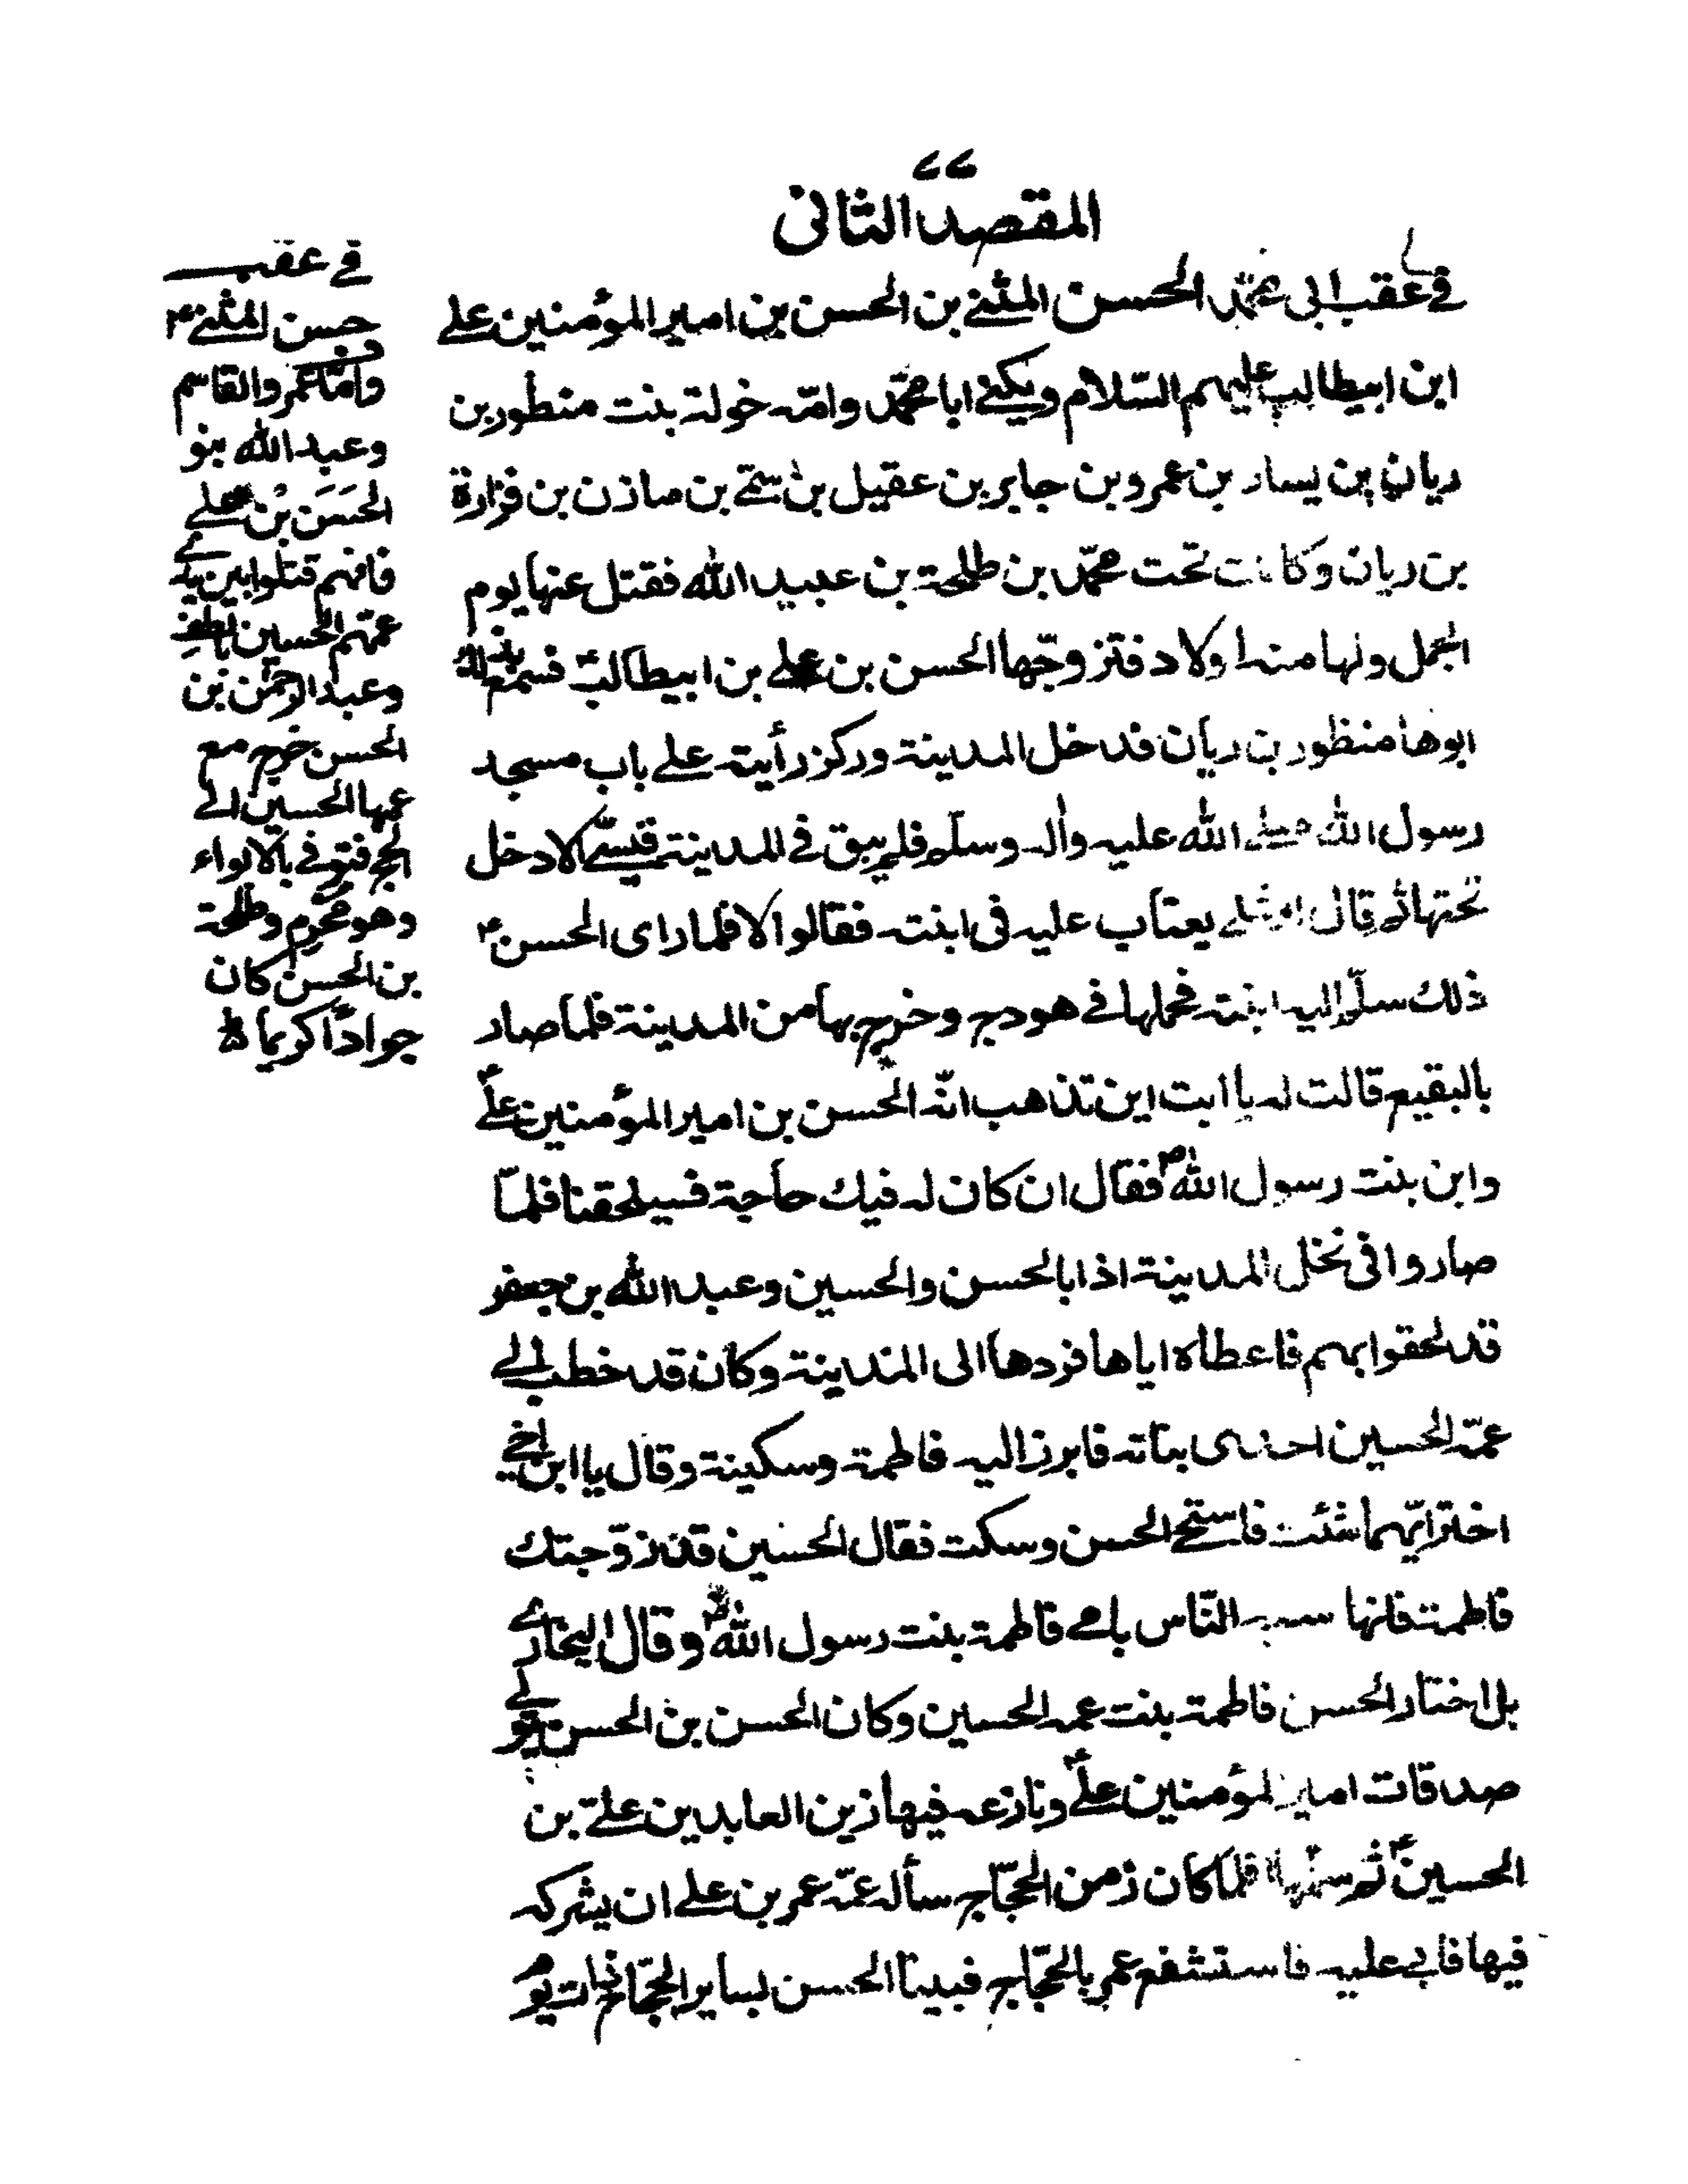 ٧٧
المقصد الثانی
فے عقب ابی محمّد الحسن المثنے بن الحسن بن امیر المؤمنین علے
ابن ابیطالب علیہم السّلام ویکنے ابا محمّد وامّہ خولۃ بنت منظور بن
ریان بن یسار بن عمرو بن جابر بن عقیل بن سمّے بن مازن بن فزارۃ
بن ریان وکانت تحت محمّد بن طلحۃ بن عبید اللّٰہ فقتل عنہا یوم
الجمل ولہا منہ اولاد فتزوّجہا الحسن بن علے بن ابیطالب فسمع بذلك
ابوھا منظور بن ریان فدخل المدینۃ ورکز رأیتہ علے باب مسجد
رسول اللّٰہ صلے اللّٰہ علیہ واٰلہ وسلّم فلم یبق فے المدینۃ قیسّے الا دخل
تحتہا ثم قال امثلے یعتاب علیہ فی ابنتہ فقالوا لا فلما رای الحسن ؑ
ذلك سلّم الیہ ابنتہ فحملہا فے ھودج وخرج بہا من المدینۃ فلما صار
بالبقیع قالت لہ یا ابت این تذھب انّہ الحسن بن امیر المؤمنین علےؑ
وابن بنت رسول اللّٰہ ؐ فقال ان کان لہ فیك حاجۃ فسیلحقنا فلمّا
صاروا فی نخل المدینۃ اذا بالحسن والحسین وعبد اللّٰہ بن جعفر
قد لحقوا بہم فاعطاہ ایاھا فردھا الی المدینۃ وکان قد خطب الے
عمّہ الحسین احدی بناتہ فابرز الیہ فاطمۃ وسکینۃ وقال یا ابن اخے
اختر ایّہما شئت فاستحے الحسن وسکت فقال الحسین قد زوّجتك
فاطمۃ فانہا النّاس بامے فاطمۃ بنت رسول اللّٰہ ؐ وقال البخارے
بل اختار الحسن فاطمۃ بنت عمہ الحسین وکان الحسن بن الحسن یتولے
صدقات امیر المؤمنین علےؑ ونازعہ فیہا زین العابدین علیّ بن
الحسین ؑ ثم سلّمہا فلما کان زمن الحجّاج سألہ عمّہ عمر بن علے ان یشرکہ
فیہا فابے علیہ فاستشفع عمر بالحجّاج فبینا الحسن یسایر الحجّاج ذات یوم
فے عقب
حسن المثنے ؑ
وامّا عمر والقاسم
وعبد اللّٰہ بنو
الحَسَن بْن علے
فانہم قتلوا بین یدے
عمّہم الحسین بالطف
وعبد الرحمٰن بن
الحسن خرج مع
عمہا الحسین الے
الحج فتوفے بالابواء
وھو محرم وطلحۃ
بن الحسن کان
جوادًا کریما